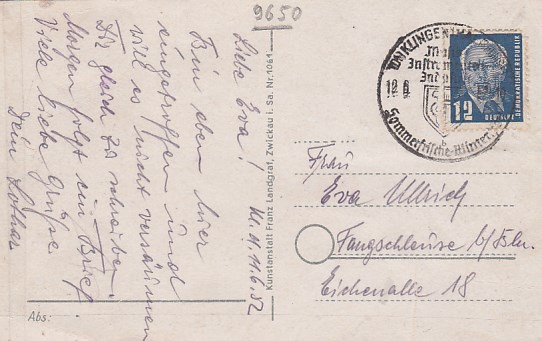 9650
Kl. d. 11.6.52
Liebe Eva!
Bin eben hier
eingetroffen und
will es nicht versäumen
Dir gleich zu schreiben.
Morgen folgt ein Brief
Viele liebe Grüße
Dein Lothar
Abs:
Kunstanstalt Franz Landgraf, Zwickau i. Sa. Nr. 1061
KLINGENTHAL
Sommerfrische
12
DEUTSCHE
DEMOKRATISCHE REPUBLIK
Frau
Eva Ullrich
Fangschleuse b/Bln.
Eichenalle 18